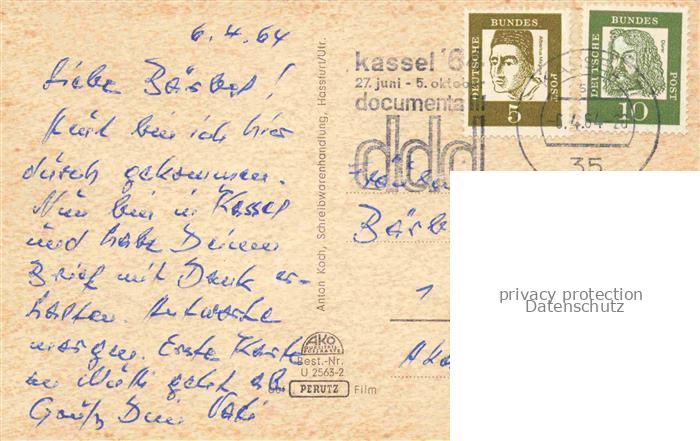 6.4.64
Liebe Bärbel!
bin ich hier
durch gekommen.
Nun bin in Kassel
und habe Deinen
Brief mit Dank er-
halten. Antworte
morgen. Erste Karte
an Mutti geht ab
Gruß Dein Vati
Anton Koch, Schreibwarenhandlung, Hassfurt/Ufr.
AKO
Best.-Nr.
U 2563-2
auf PERUTZ Film
kassel '6
27. juni - 5. oktob
documenta III
ddd
DEUTSCHE
BUNDES
POST
Albertus Magnus
5
DEUTSCHE
BUNDES
POST
Dürer
10
6.4.64
35
Fräulein
Bärbel
1
privacy protection
Datenschutz